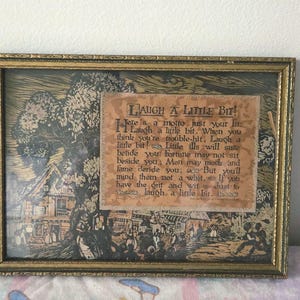 LAUGH A LITTLE BIT!
Here's a motto just your fit
Laugh a little bit. When you
think you're trouble-hit, Laugh a
little bit! Little ills will sure
betide you Fortune may not sit
beside you, Men may mock and
fame deride you, But you'll
mind them not a whit If you
have the grit and wit just to
laugh a little bit.